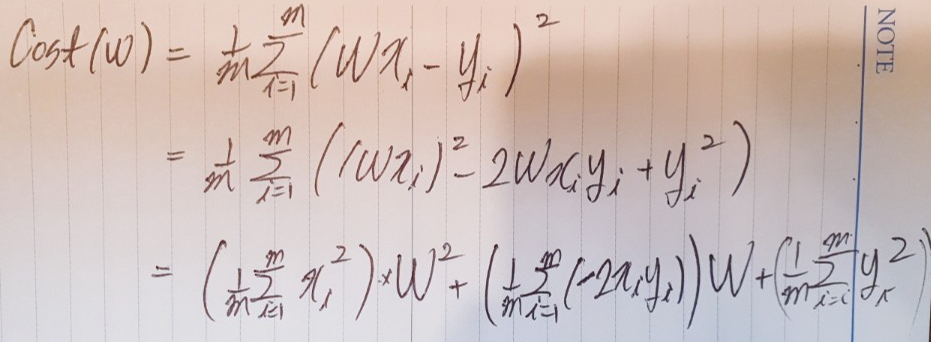 Cost(W) = 1/m Σ_{i=1}^{m} (Wx_i - y_i)^2
= 1/m Σ_{i=1}^{m} ((Wx_i)^2 - 2Wx_iy_i + y_i^2)
= (1/m Σ_{i=1}^{m} x_i^2) × W^2 + (1/m Σ_{i=1}^{m} (-2x_iy_i)) W + (1/m Σ_{i=i}^{m} y_i^2)
NOTE